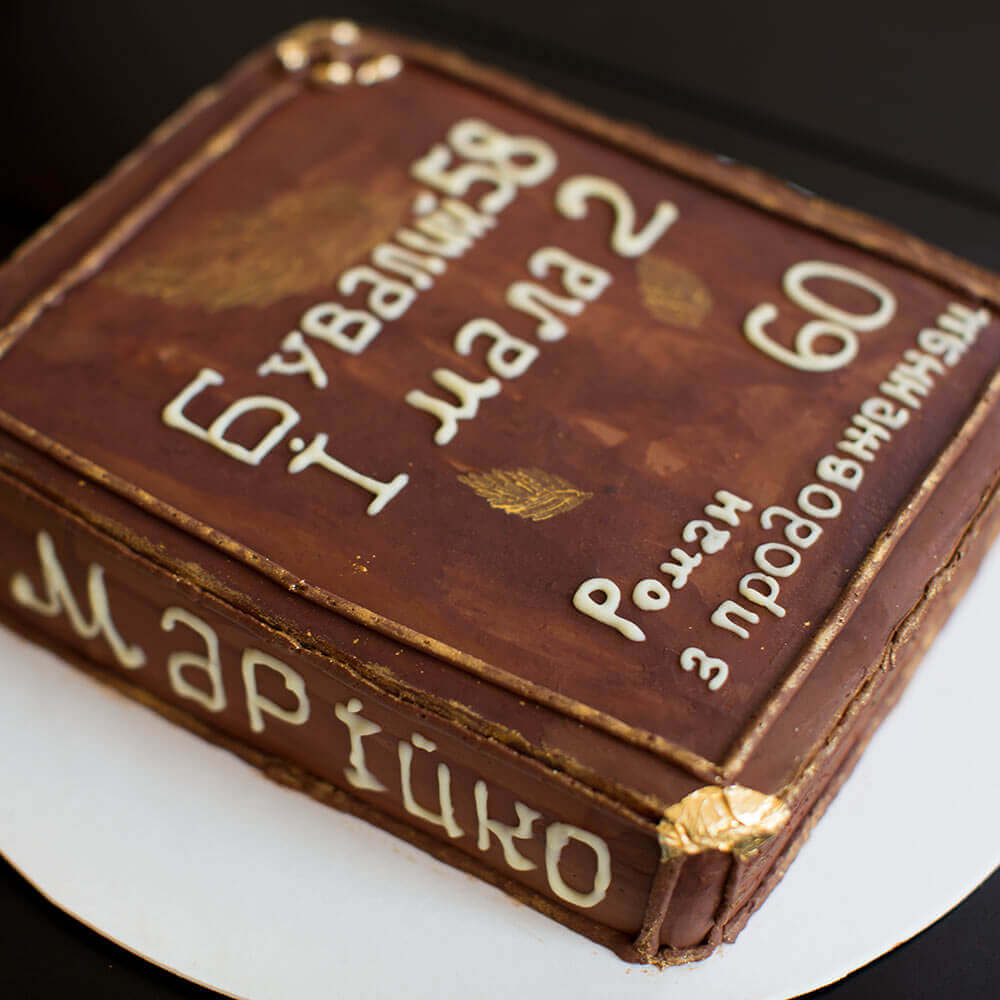 Бувалий 58
І мала 2
60
Роман
з продовженням
Марійко